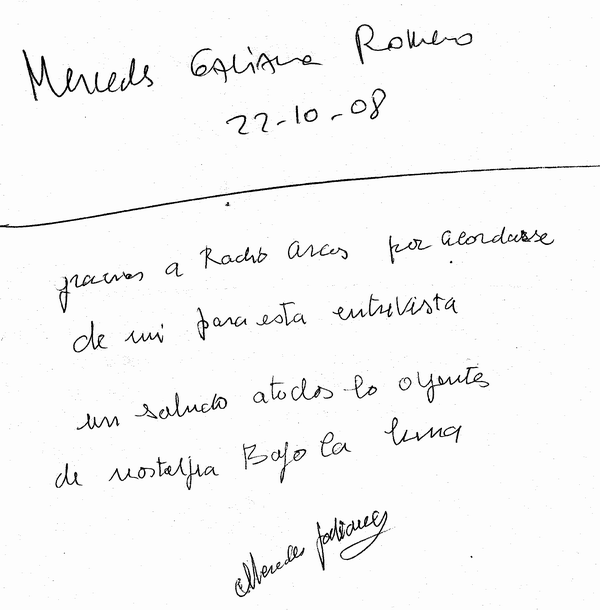 Mercedes GALiANA Romero
22-10-08
gracias a Radio Arcos por acordarse
de mi para esta entrevista
un saludo a todos lo oyentes
de nostaljia Bajo la luna
Mercedes Galiana